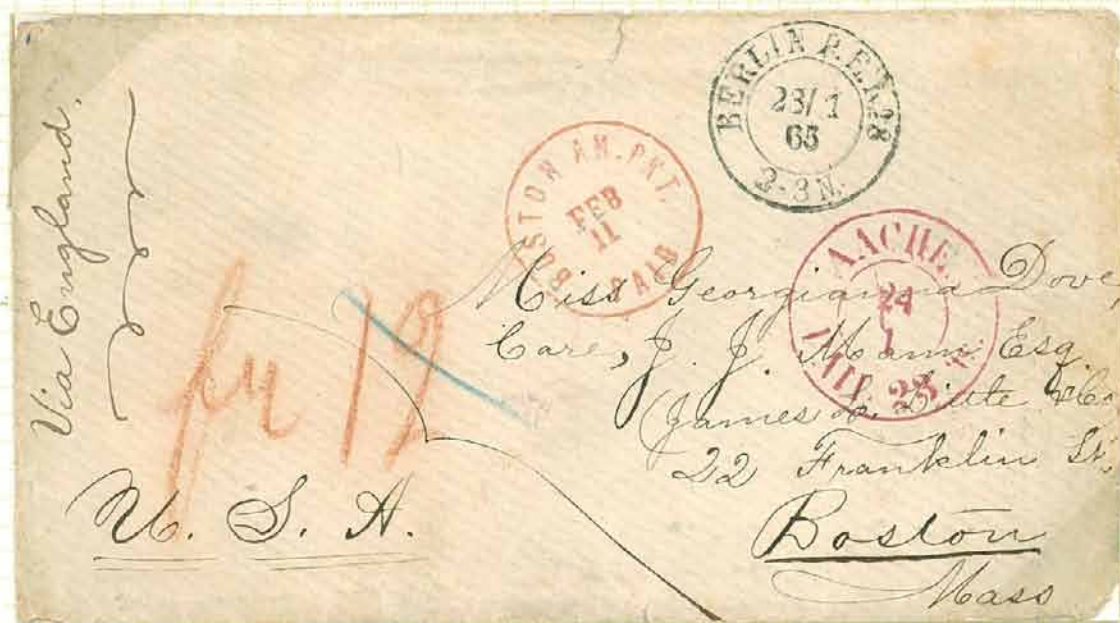 Via England.
BERLIN P.E. № 28
23/1
65
2-3 N.
BOSTON AM. PKT.
FEB
11
PAID
AACHEN
24
1
fr 12
Miss Georgianna Dove
Care, J. J. Mann Esq.
James L. &
22 Franklin St.
U. S. A.
Boston
Mass